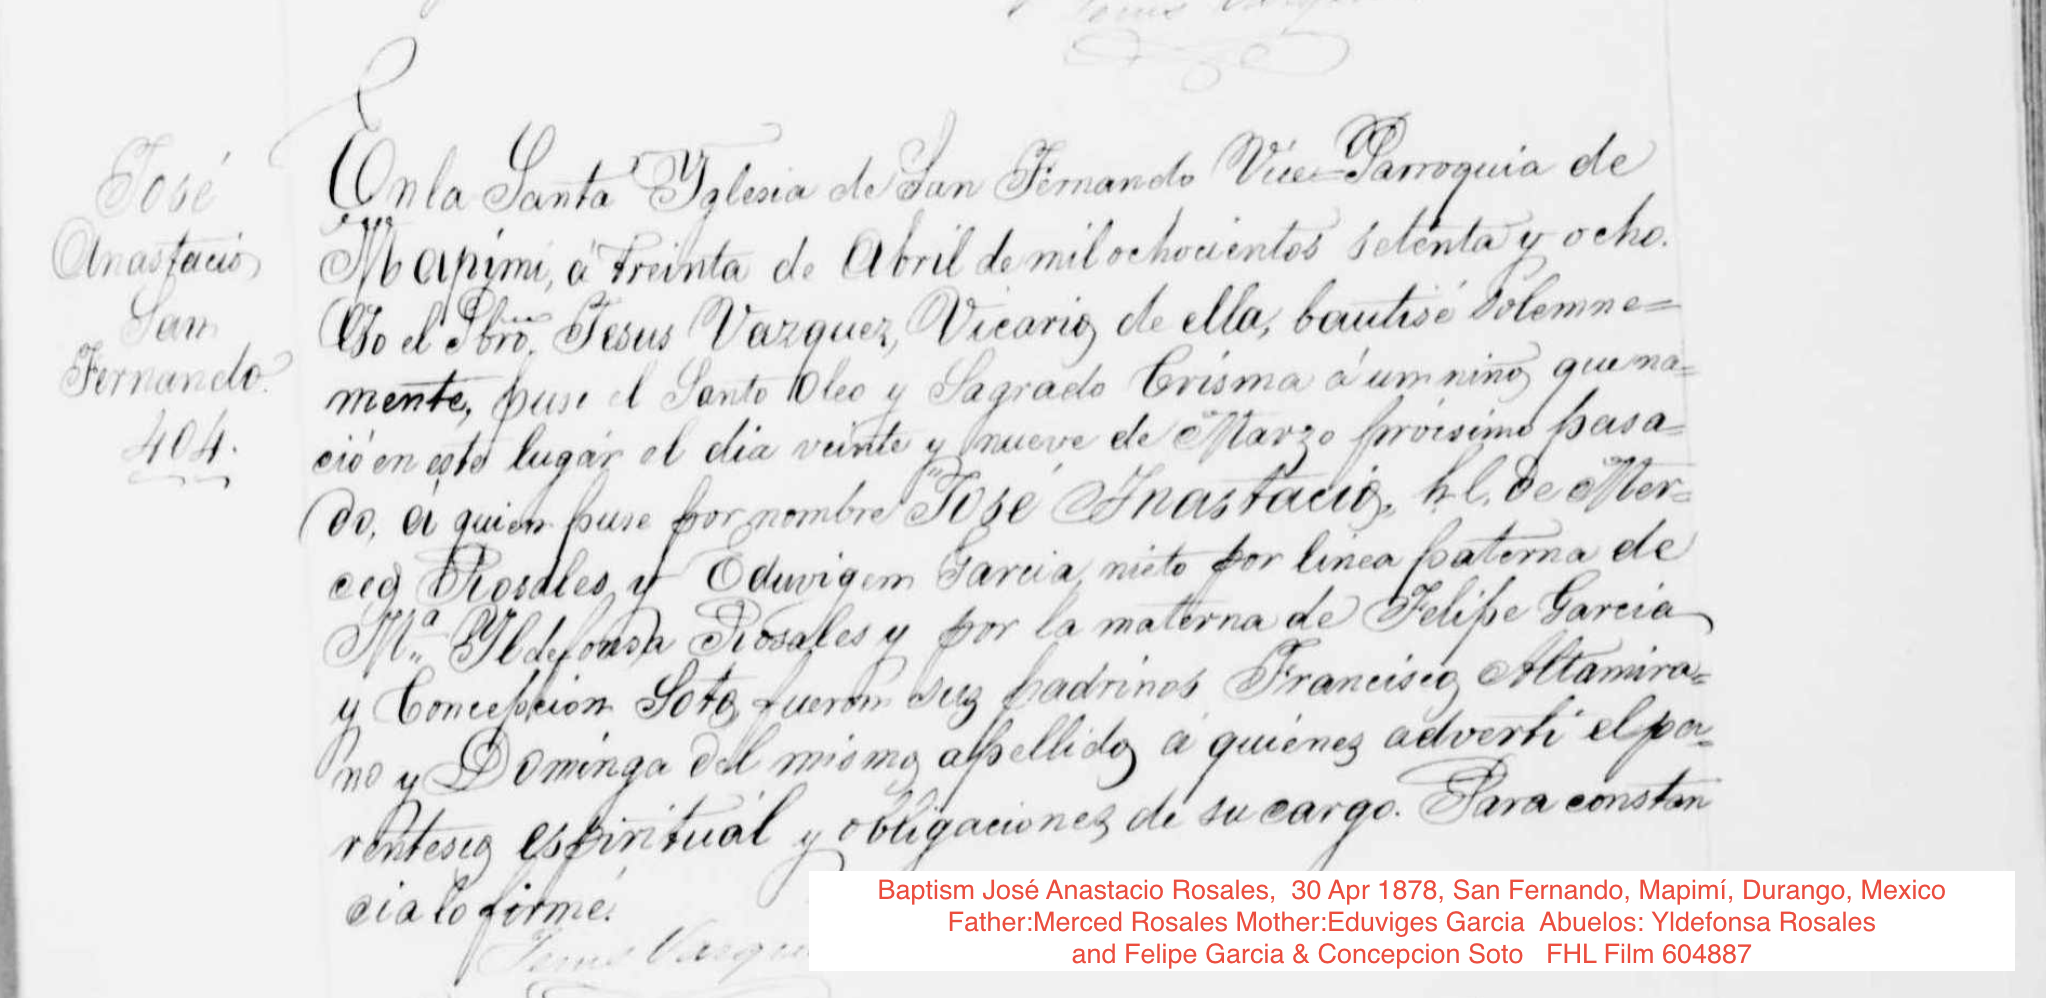 José
Anastacio
San
Fernando.
404.
En la Santa Yglesia de San Fernando Vice=Parroquia de
Mapimi, á treinta de Abril de mil ochocientos setenta y ocho.
Yo el Pbro. Jesus Vazquez, Vicario de ella, bautisé solemne=
mente, puse el Santo Oleo y Sagrado Crisma á um niño que na=
ció en este lugár el dia veinte y nueve de Marzo próisimo pasa=
do, á quien puse por nombre José Anastacio, h. l. de Mer=
ced Rosales y Eduvigem Garcia, nieto por linea paterna de
Mª Yldefonsa Rosales y por la materna de Felipe Garcia
y Concepcion Soto, fueron sus padrinos Francisco Altamira=
no y Dominga del mismo apellido á quiénes adverti el pa=
rentesco espirituál y obligaciones de su cargo. Para constan
cia lo firmé.
Jesus Vazquez
Baptism José Anastacio Rosales, 30 Apr 1878, San Fernando, Mapimí, Durango, Mexico
Father:Merced Rosales Mother:Eduviges Garcia Abuelos: Yldefonsa Rosales
and Felipe Garcia & Concepcion Soto FHL Film 604887